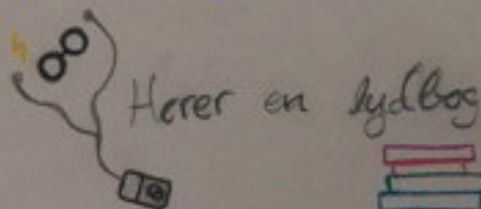 Hører en lydbog